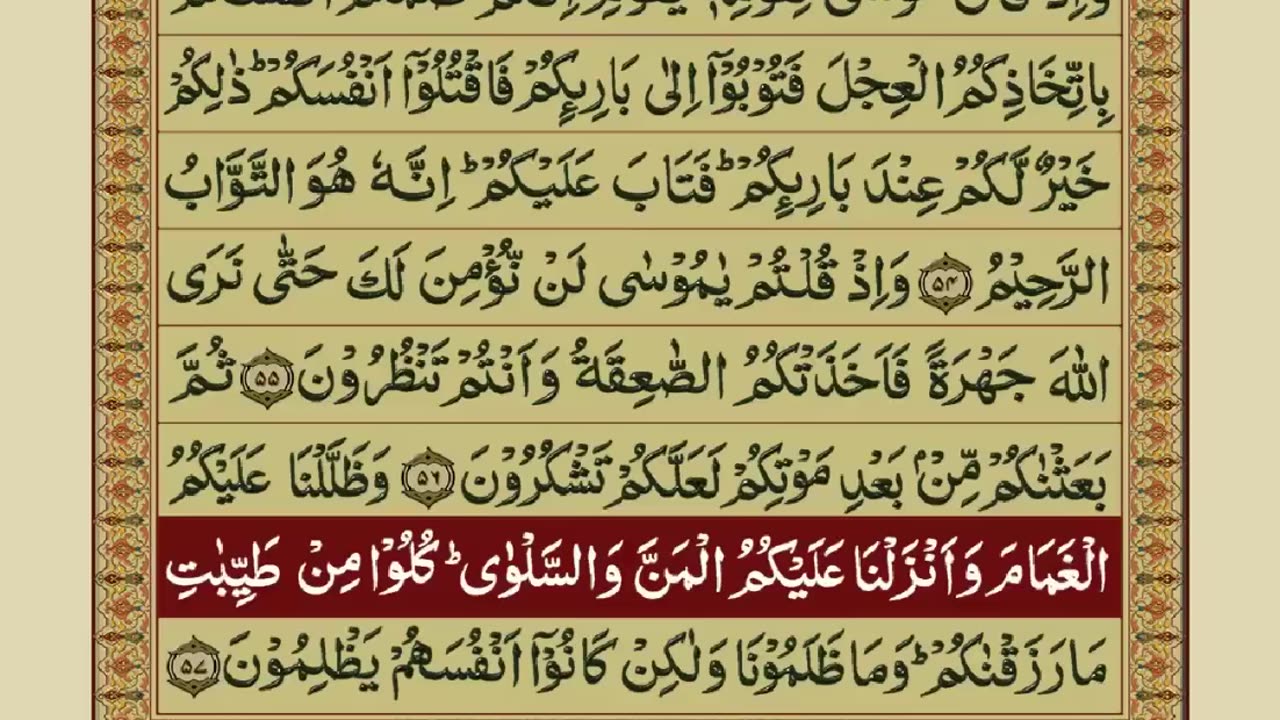 بِاتِّخَاذِكُمُ الْعِجْلَ فَتُوْبُوْۤا اِلٰى بَارِىِٕكُمْ فَاقْتُلُوْۤا اَنْفُسَكُمْؕ ذٰلِكُمْ
خَيْرٌ لَّكُمْ عِنْدَ بَارِىِٕكُمْؕ فَتَابَ عَلَيْكُمْؕ اِنَّهٗ هُوَ التَّوَّابُ
الرَّحِيْمُ ﴿۵۴﴾ وَاِذْ قُلْتُمْ يٰمُوْسٰى لَنْ نُّؤْمِنَ لَكَ حَتّٰى نَرَى
اللهَ جَهْرَةً فَاَخَذَتْكُمُ الصّٰعِقَةُ وَاَنْتُمْ تَنْظُرُوْنَ ﴿۵۵﴾ ثُمَّ
بَعَثْنٰكُمْ مِّنْۢ بَعْدِ مَوْتِكُمْ لَعَلَّكُمْ تَشْكُرُوْنَ ﴿۵۶﴾ وَظَلَّلْنَا عَلَيْكُمُ
الْغَمَامَ وَاَنْزَلْنَا عَلَيْكُمُ الْمَنَّ وَالسَّلْوٰىؕ كُلُوْا مِنْ طَيِّبٰتِ
مَا رَزَقْنٰكُمْؕ وَمَا ظَلَمُوْنَا وَلٰكِنْ كَانُوْۤا اَنْفُسَهُمْ يَظْلِمُوْنَ ﴿۵۷﴾